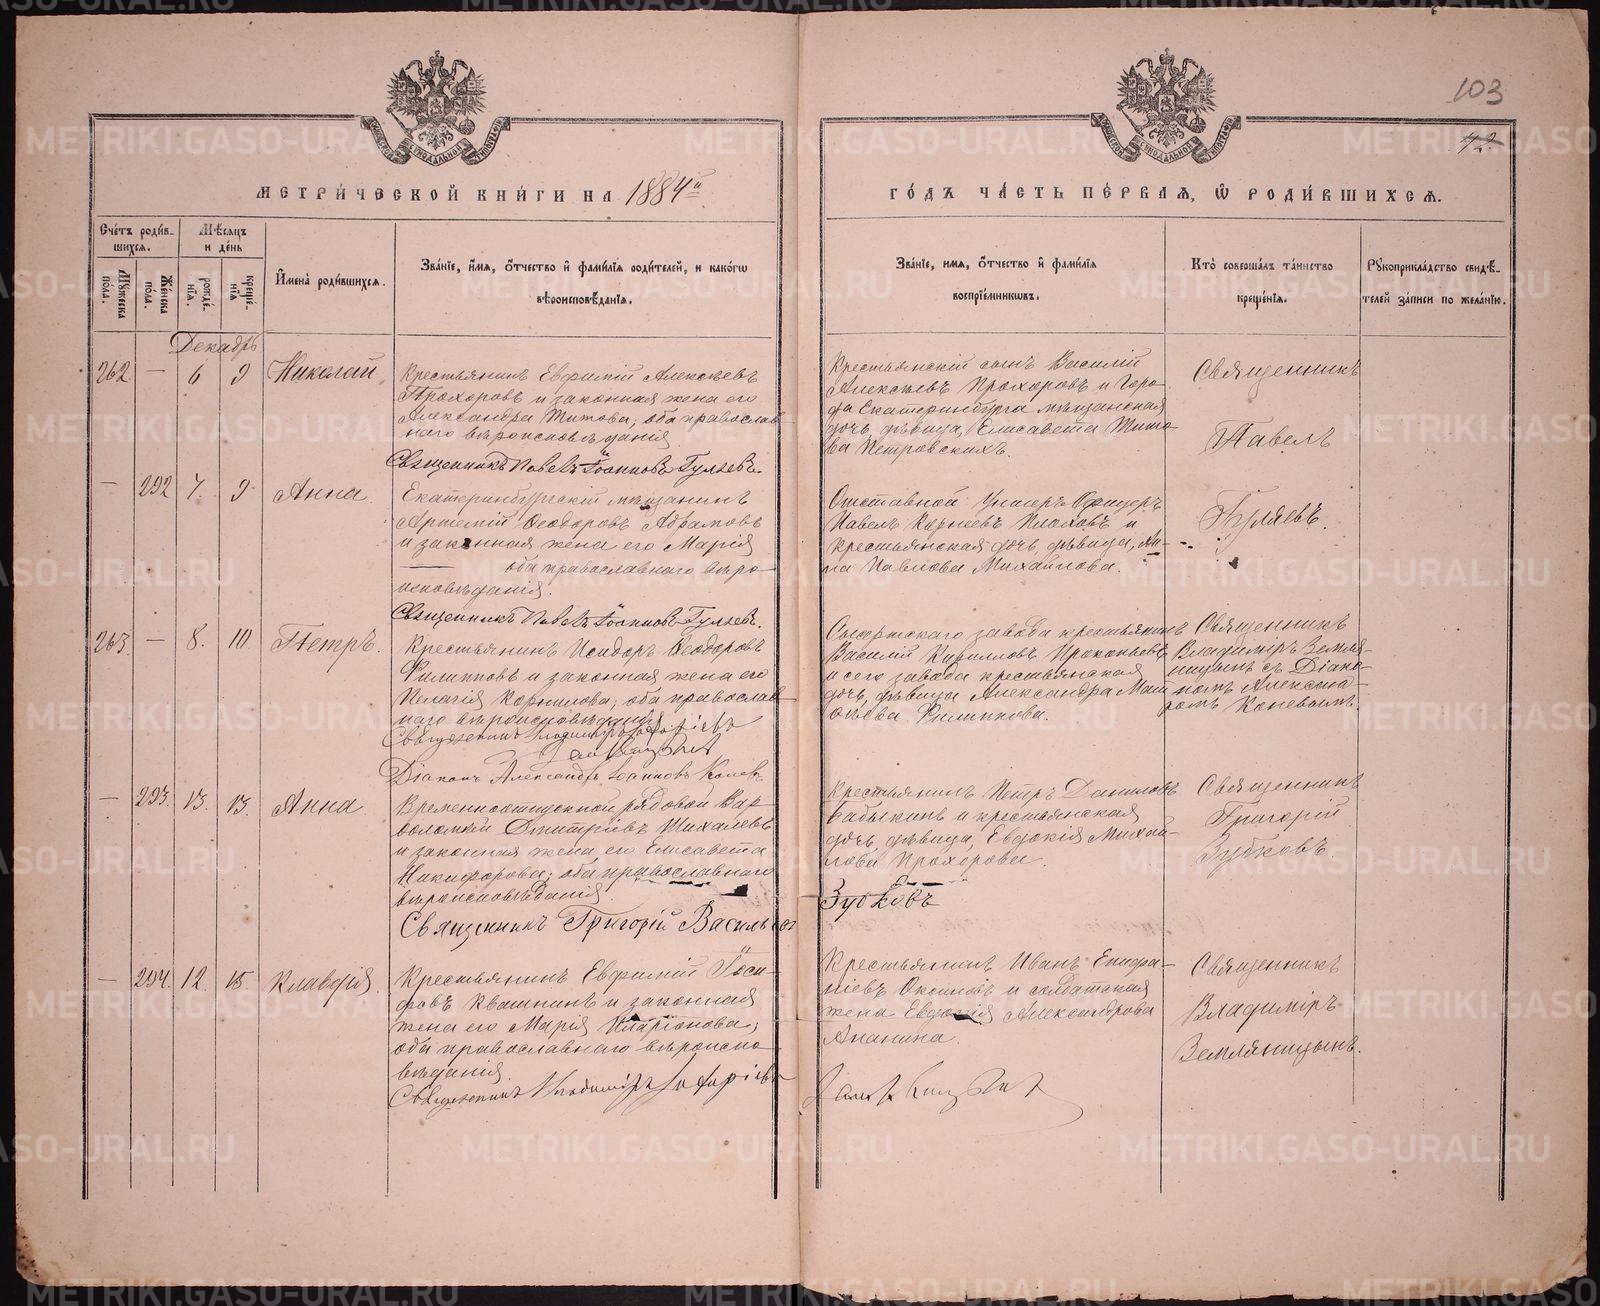 103
42
МЕТРИ́ЧЕСКОЙ КНИ́ГИ НА 1884й
ГО́ДЪ ЧА́СТЬ ПЕ́РВАѦ, Ѡ РОДИ́ВШИХСѦ.
Сче́тъ роди́в-
шихсѧ.
Мѣ́сѧцъ
и де́нь
Мꙋ́жеска
по́ла.
Же́нска
по́ла.
рожде́-
нїѧ.
креще́-
нїѧ
И҆мена̀ роди́вшихсѧ.
Зва́нїе, и҆́мѧ, о҆́тчество и҆ фами́лїѧ роди́телей, и како́гѡ
вѣроисповѣ́данїѧ.
Зва́нїе, имѧ, о҆́тчество и҆ фами́лїѧ
воспрїе́мникѡвъ.
Кто̀ соверша́лъ та́инство
креще́нїѧ.
Рꙋкоприкла́дство свидѣ́-
телей за́писи по жела́нїю.
Декабрь
262 — 6 9 Николай
Крестьянинъ Евфимій Алексѣевъ
Прохоровъ и законная жена его
Александра Титова, оба православ-
наго вѣроисповѣданія.
Священникъ Павелъ Іоанновъ Гуляевъ.
Крестьянскій сынъ Василій
Алексѣевъ Прохоровъ и Горо-
да Екатеринбурга мѣщанская
дочь, дѣвица, Елисавета Тито-
ва Петровскихъ.
Священникъ
Павелъ
Гуляевъ.
— 292 7 9 Анна.
Екатеринбургскій мѣщанинъ
Артемій Ѳеодоровъ Абрамовъ
и законная жена его Марія
— оба православнаго вѣро-
исповѣданія.
Священникъ Павелъ Іоанновъ Гуляевъ.
Отставной Унтеръ Офицеръ
Павелъ Корнѣевъ Плаховъ и
крестьянская дочь, дѣвица, Ан-
на Павлова Михайлова.
263. — 8. 10 Петръ.
Крестьянинъ Исидоръ Ѳеодоровъ
Филипповъ и законная жена его
Пелагія Корнилова, оба православ-
наго вѣроисповѣданія
Священникъ Владиміръ
Діаконъ Александръ Іоанновъ Коневъ
Сысертскаго завода крестьянинъ
Василій Кирилловъ Прокопьевъ
и сего завода крестьянская
дочь, дѣвица Александра Мат-
ѳѣева Филиппова.
Священникъ
Владиміръ Земля-
ницынъ съ Діако-
номъ Алексан-
ромъ Коневымъ.
— 293. 13. 13. Анна
Временноотпускной рядовой Вар-
ѳоломей Дмитріевъ Михалевъ
и законная жена его Елисавета
Никифорова; оба православнаго
вѣроисповѣданія
Священникъ Григорій Васильевъ
Зубковъ
Крестьянинъ Петръ Даниловъ
Бабыкинъ и крестьянская
дочь, дѣвица, Евдокія Михай-
лова Прохорова.
Священникъ
Григорій
Зубковъ.
— 294. 12. 15. Клавдія.
Крестьянинъ Евфимій Іоси-
фовъ Квашнинъ и законная
жена его Марія Иларіонова,
оба православнаго вѣроиспо-
вѣданія.
Священникъ Владиміръ
Крестьянинъ Иванъ Епифа-
ніевъ и солдатская
жена Евдокія Александрова
Ананина.
Священникъ
Владиміръ
Земляницынъ.
METRIKI.GASO-URAL.RU